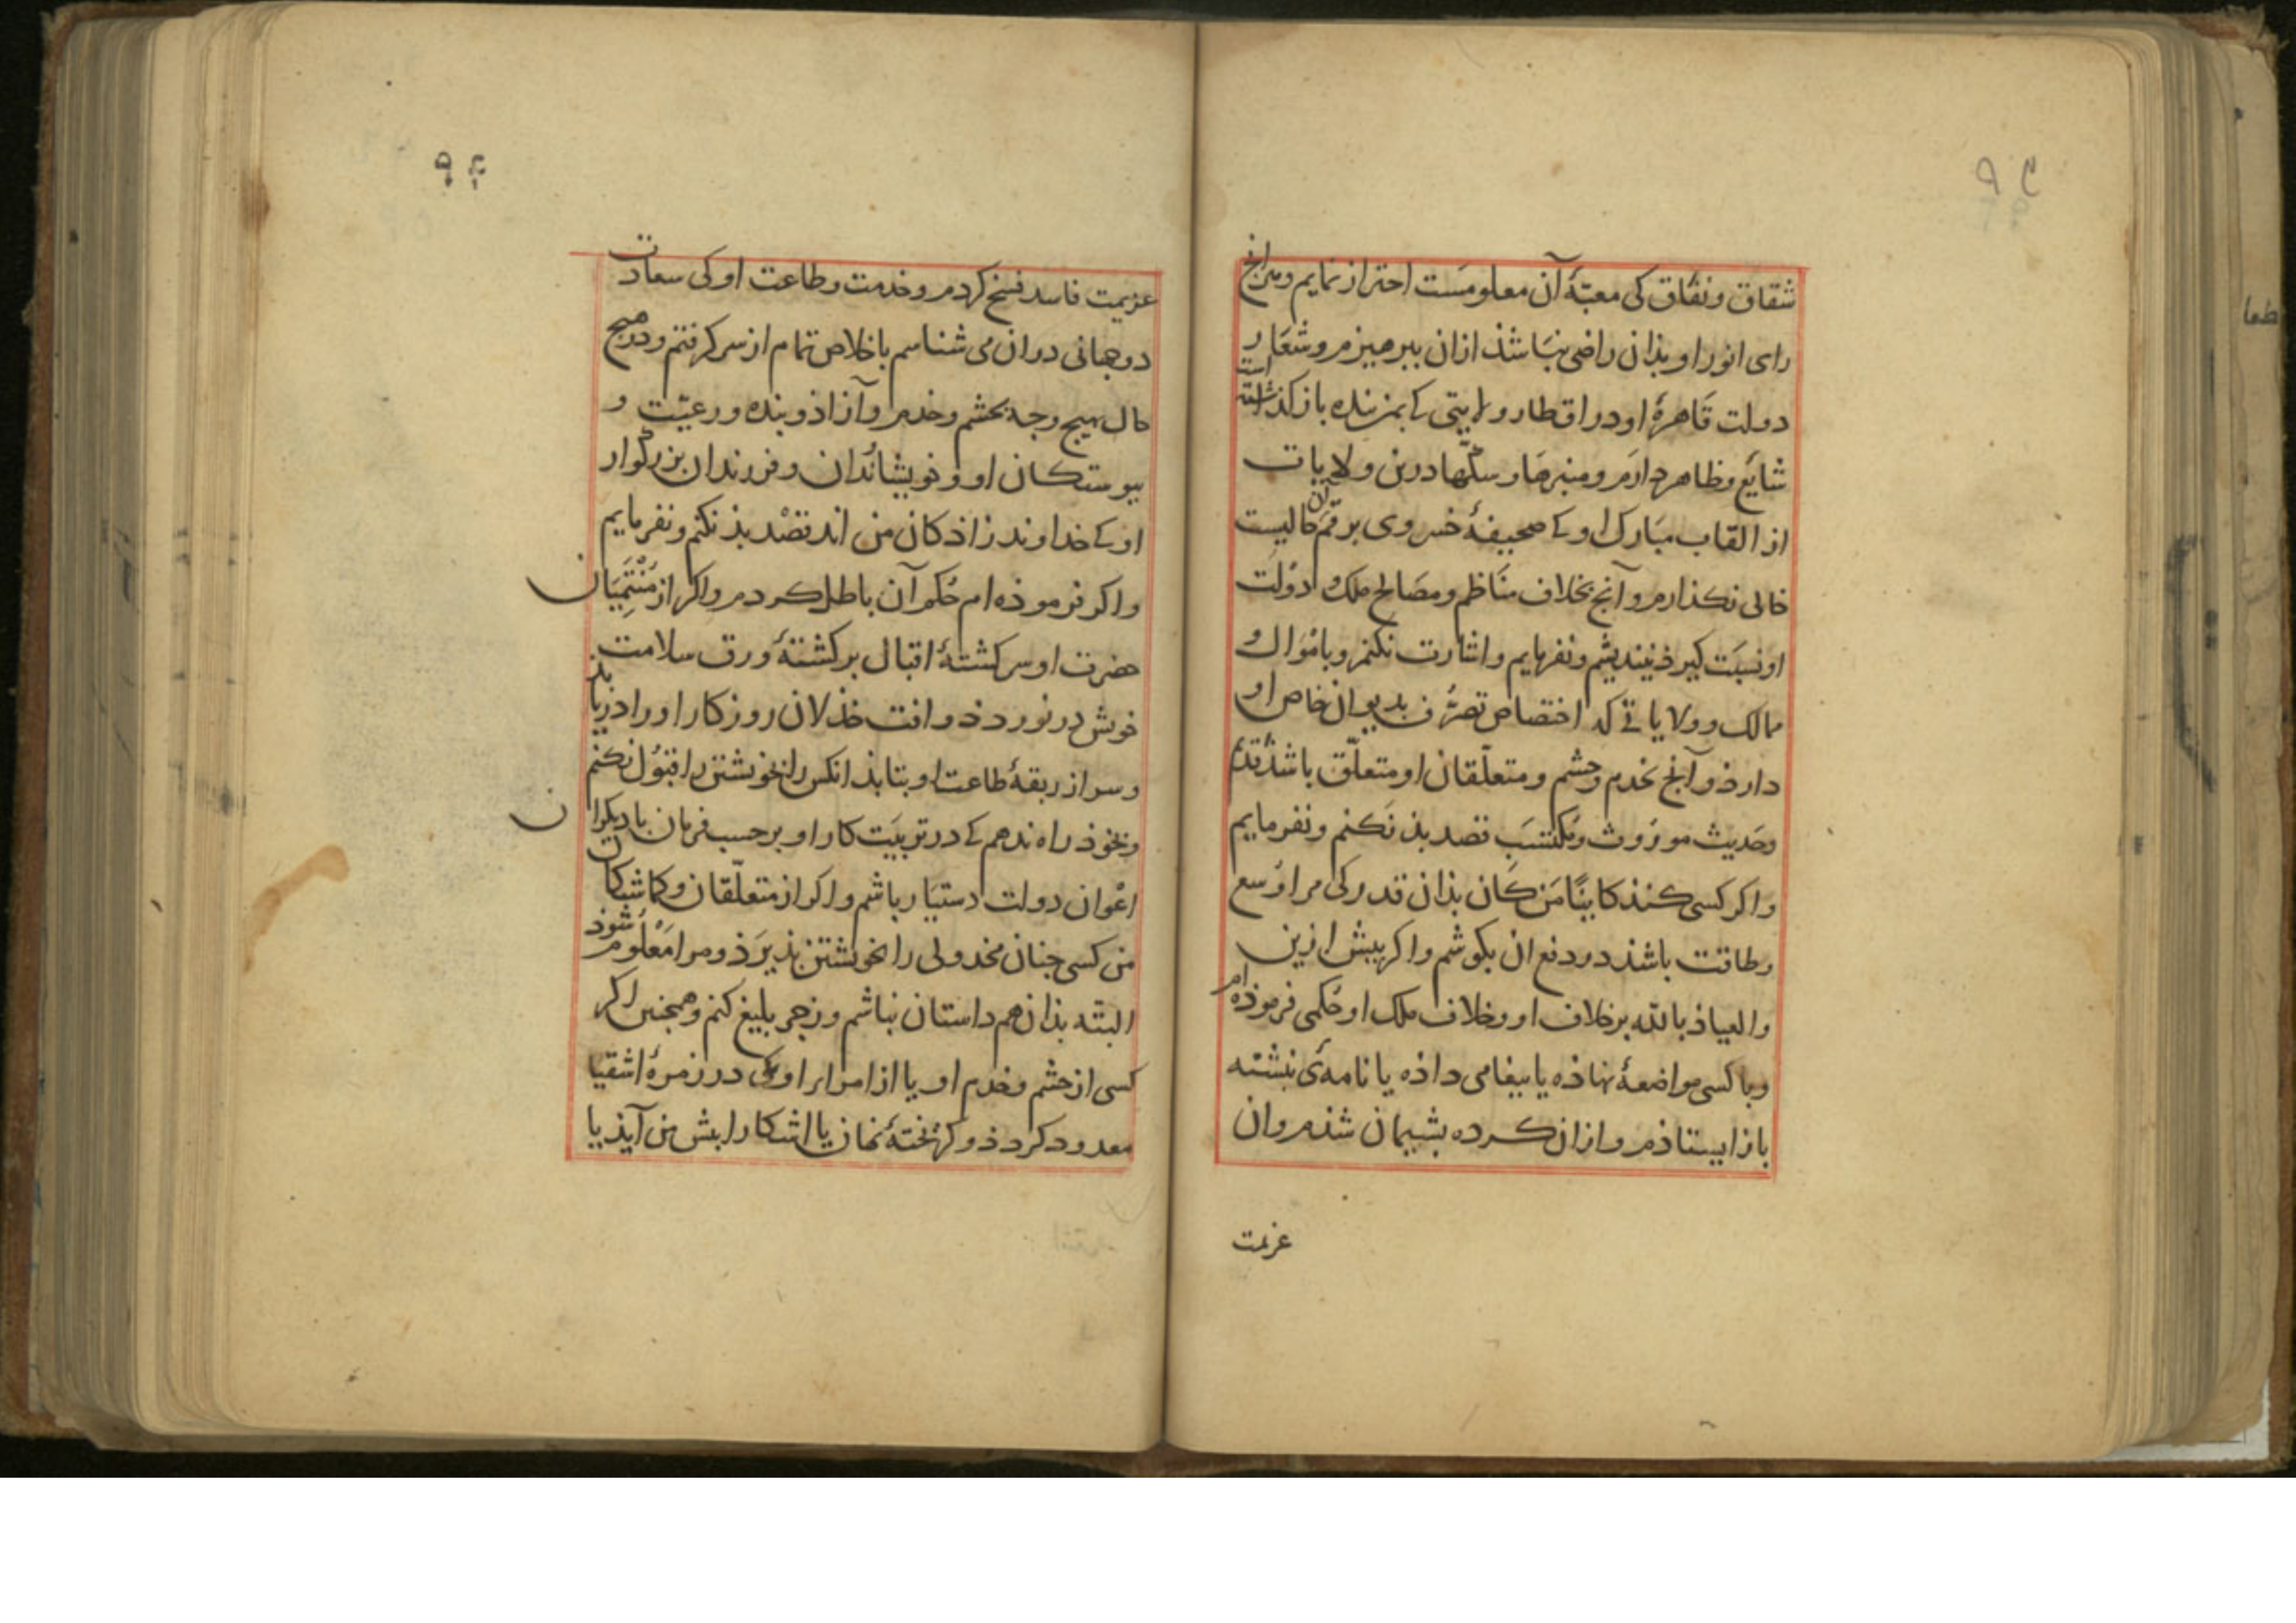 شقاق ونفاق کی مغبّۀ آن معلومست احتراز نمایم وهرانج
رای انور او بذان راضی نباشذ ازان ببرهیزم وشعار
دولت قاهرۀ او در اقطار ولایتی کے بمن بنده باز کذاشته است
شایع وظاهر دارم ومنبرها وسکّها درین ولایات
از القاب مبارک او کے صحیفۀ خسروی برقم ان حالیست
خالی نکذارم وآنج بخلاف مناظم ومصالح ملک ودولت
او نسبت کیرذ نیندیشم ونفرمایم واشارت نکنم وباموال و
ممالک وولایاتے که اختصاص تصرّف بدیوان خاص او
دارذ وآنج بخدم وحشم ومتعلّقان او متعلّق باشذ قدیم
وحدیث موروث ومکتسب قصد بذ نکنم ونفرمایم
واکر کسی کنذ کاینًا من کان بذان قدر کی مرا وسع
وطاقت باشذ در دفع ان بکوشم واکر بیش ازین
والعیاذ بالله برخلاف او وخلاف ملک او حکمی فرموذه ام
وبا کسی مواضعۀ نهاذه یا بیغامی داذه یا نامۀ نبشته
باز ایستاذم واز ان کرده بشیمان شذم وان
عزیمت
عزیمت فاسد فسخ کردم وخدمت وطاعت او کی سعادت
دوجهانی دران می شناسم باخلاص تمام از سر کرفتم ودر هیج
حال بهیج وجه بحشم وخدم وآزاذ وبنده ورعیّت و
بیوستکان او وخویشاندان وفرزندان بزرکوار
او کے خداوند زاذکان من اند قصد بذ نکنم ونفرمایم
واکر فرموذه ام حکم آن باطل کردم واکر از منتمیان
حضرت او سرکشتۀ اقبال برکشتۀ ورق سلامت
خوش در نوردذ وافت خذلان روزکار او را دریابذ
وسر از ربقۀ طاعت او بتابذ انکس را بخویشتن راه قبول نکنم
وبخوذ راه ندهم کے در تربیت کار او برحسب فرمان با دیکران
اعوان دولت دستیار باشم واکر از متعلّقان وکماشتکان
من کسی جنان مخذولی را بخویشتن بذیرذ ومرا معلوم شوذ
البتّه بذان هم داستان نباشم وزجر بلیغ کنم وهمجنین اکر
کسی از حشم وخدم او یا از امراء او کی در زمرۀ اشقیا
معدود کردذ وکریختۀ نهان یا اشکارا بیش من آیذ یا